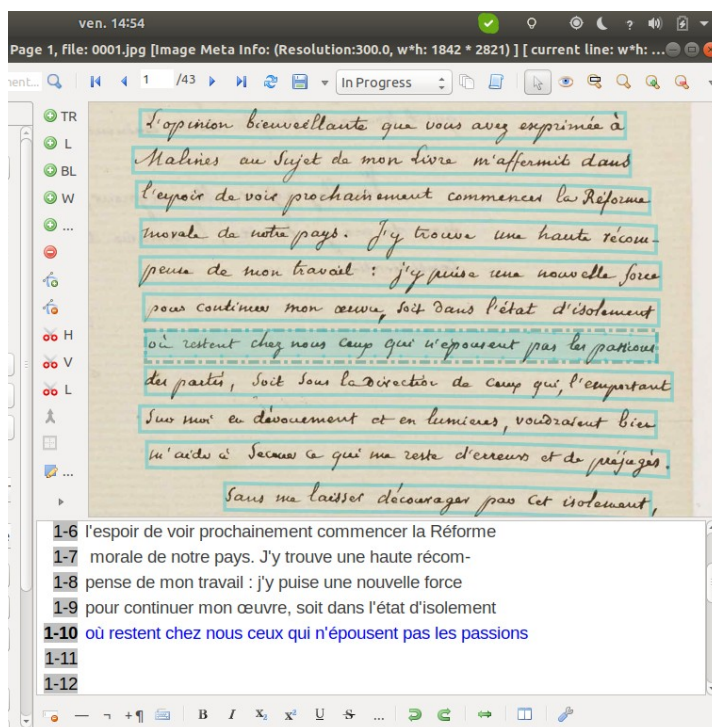 ven. 14:54
Page 1, file: 0001.jpg [Image Meta Info: (Resolution:300.0, w*h: 1842 * 2821) ] [ current line: w*h: ...
1 /43 In Progress
TR
L
BL
W
...
H
V
L
...
L'opinion bienveillante que vous avez exprimée à
Malines au Sujet de mon Livre m'affermit dans
l'espoir de voir prochainement commencer la Réforme
morale de notre pays. J'y trouve une haute récom-
pense de mon travail : j'y puise une nouvelle force
pour continuer mon œuvre, soit dans l'état d'isolement
où restent chez nous ceux qui n'épousent pas les passions
des partis, soit sous la direction de ceux qui, l'emportant
sur moi en dévouement et en lumières, voudraient bien
m'aider à secouer ce qui me reste d'erreurs et de préjugés.
Sans me laisser décourager par cet isolement,
1-6 l'espoir de voir prochainement commencer la Réforme
1-7 morale de notre pays. J'y trouve une haute récom-
1-8 pense de mon travail : j'y puise une nouvelle force
1-9 pour continuer mon œuvre, soit dans l'état d'isolement
1-10 où restent chez nous ceux qui n'épousent pas les passions
1-11
1-12
B I X₂ X² U S ...